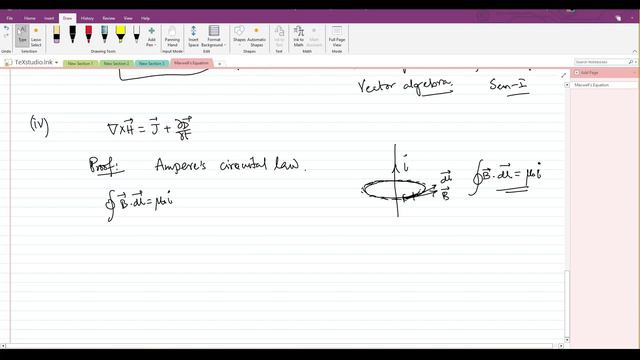 File Home Insert Draw History Review View Help
Type
Lasso Select
Panning Hand
Insert Space
Format Background
Shapes
Automatic Shapes
Ink to Text
Ink to Math
Full Page View
Add Pen
Undo
Selection
Drawing Tools
Edit
Convert
View
TeXstudio.Ink
New Section 1
New Section 2
New Section 3
Maxwell's Equation
Search Notebooks
Add Page
Maxwell's Equation
Vector algebra. Sem-I
(iv) ∇×H⃗ = J⃗ + ∂D⃗/∂t
Proof: Ampere's circuital law.
∮B⃗.dl⃗ = μ₀i
i
dl⃗
B⃗
∮B⃗.dl⃗ = μ₀i